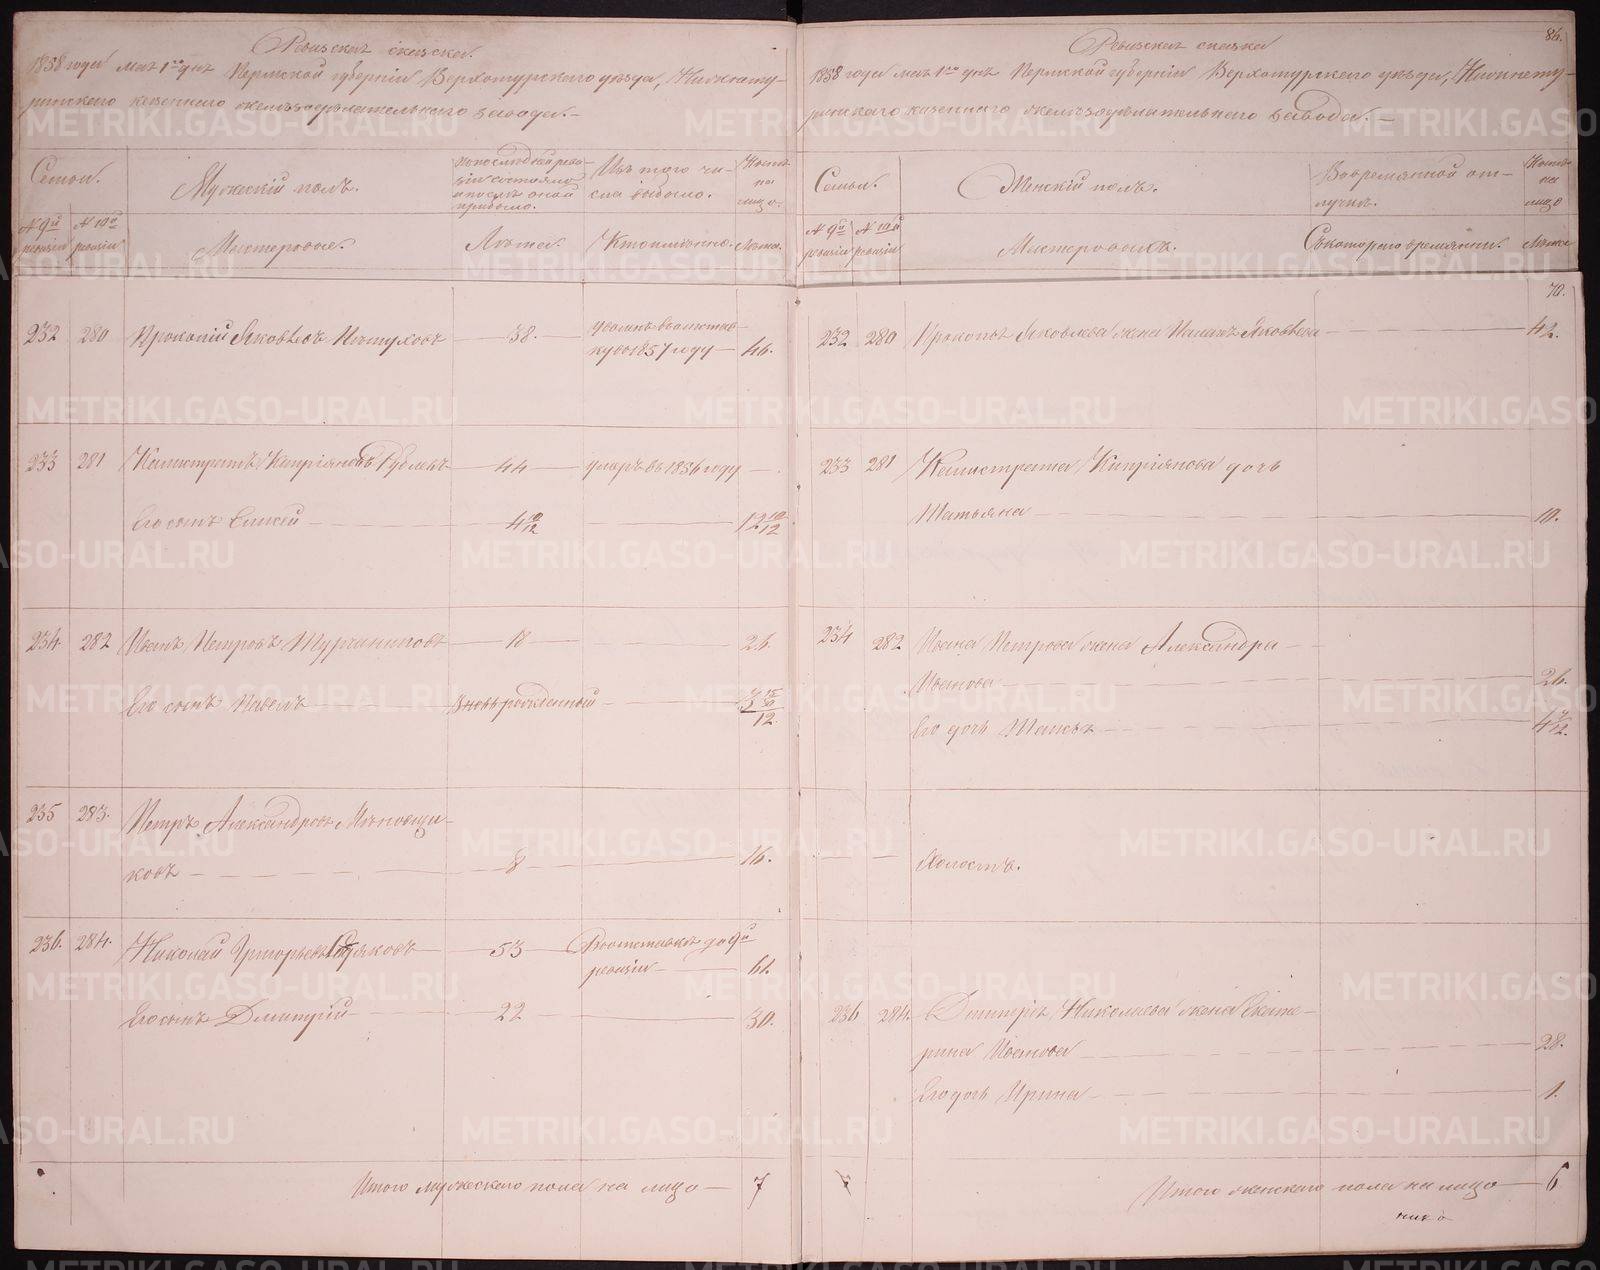 Ревизская сказка.
1858 года мая 1го дня Пермской губернiи Верхотурскаго уѣзда, Нижнету-
ринскаго казеннаго желѣзодѣлательнаго завода.-
Семьи.
Мужескiй полъ.
По последней реви-
зiи состояло
и послѣ оной
прибыло.
Изъ того чи-
сла выбыло.
Ныне
на
лицо.
№ 9й ревизiи
№ 10й ревизiи
Мастеровые.
Лѣта.
Когда именно.
Лѣта.
232 280 Прокопiй Яковлевъ Пѣтуховъ — 38. — уволенъ въ отстав-
ку въ 1857 году — 46.
233 281 Калистратъ Кипрiяновъ — 44 — умеръ въ 1856 году —
Его сынъ Елисей — 4 10/12 — 12 10/12
234 282 Иванъ Петровъ Турчаниновъ — 18 — 26.
Его сынъ Павелъ — вновь рожденный — 12.
235 283. Петръ Александровъ Мѣновщи-
ковъ — 8 — 16.
236. 284. Николай Григорьевъ — 53 — Въ отставкѣ до 9й
ревизiи — 61.
Его сынъ Дмитрiй — 22 — 30.
Итого мужескаго пола на лицо — 7
86.
Ревизская сказка
1858 года мая 1го дня Пермской губернiи Верхотурскаго уѣзда, Нижнету-
ринскаго казеннаго желѣзодѣлательнаго завода. —
Семьи.
Женскiй полъ.
Во временной от-
лучкѣ.
Ныне
на
лицо
№ 9й ревизiи
№ 10й ревизiи
Мастеровыхъ.
Съ котораго времянни.
Лѣта
70.
232 280 Прокопья Яковлева жена Палагѣя Яковлева — 42.
233 281 Калистрата Кипрiянова дочь
Татьяна — 10.
234 282 Ивана Петрова жена Александра —
Иванова — 26.
Его дочь Таисья — 4 9/12.
Холостъ.
236 284. Дмитрiя Николаева жена Екате-
рина Иванова — 28.
Его дочь Ирина — 1.
Итого женскаго пола на лицо — 6
METRIKI.GASO-URAL.RU